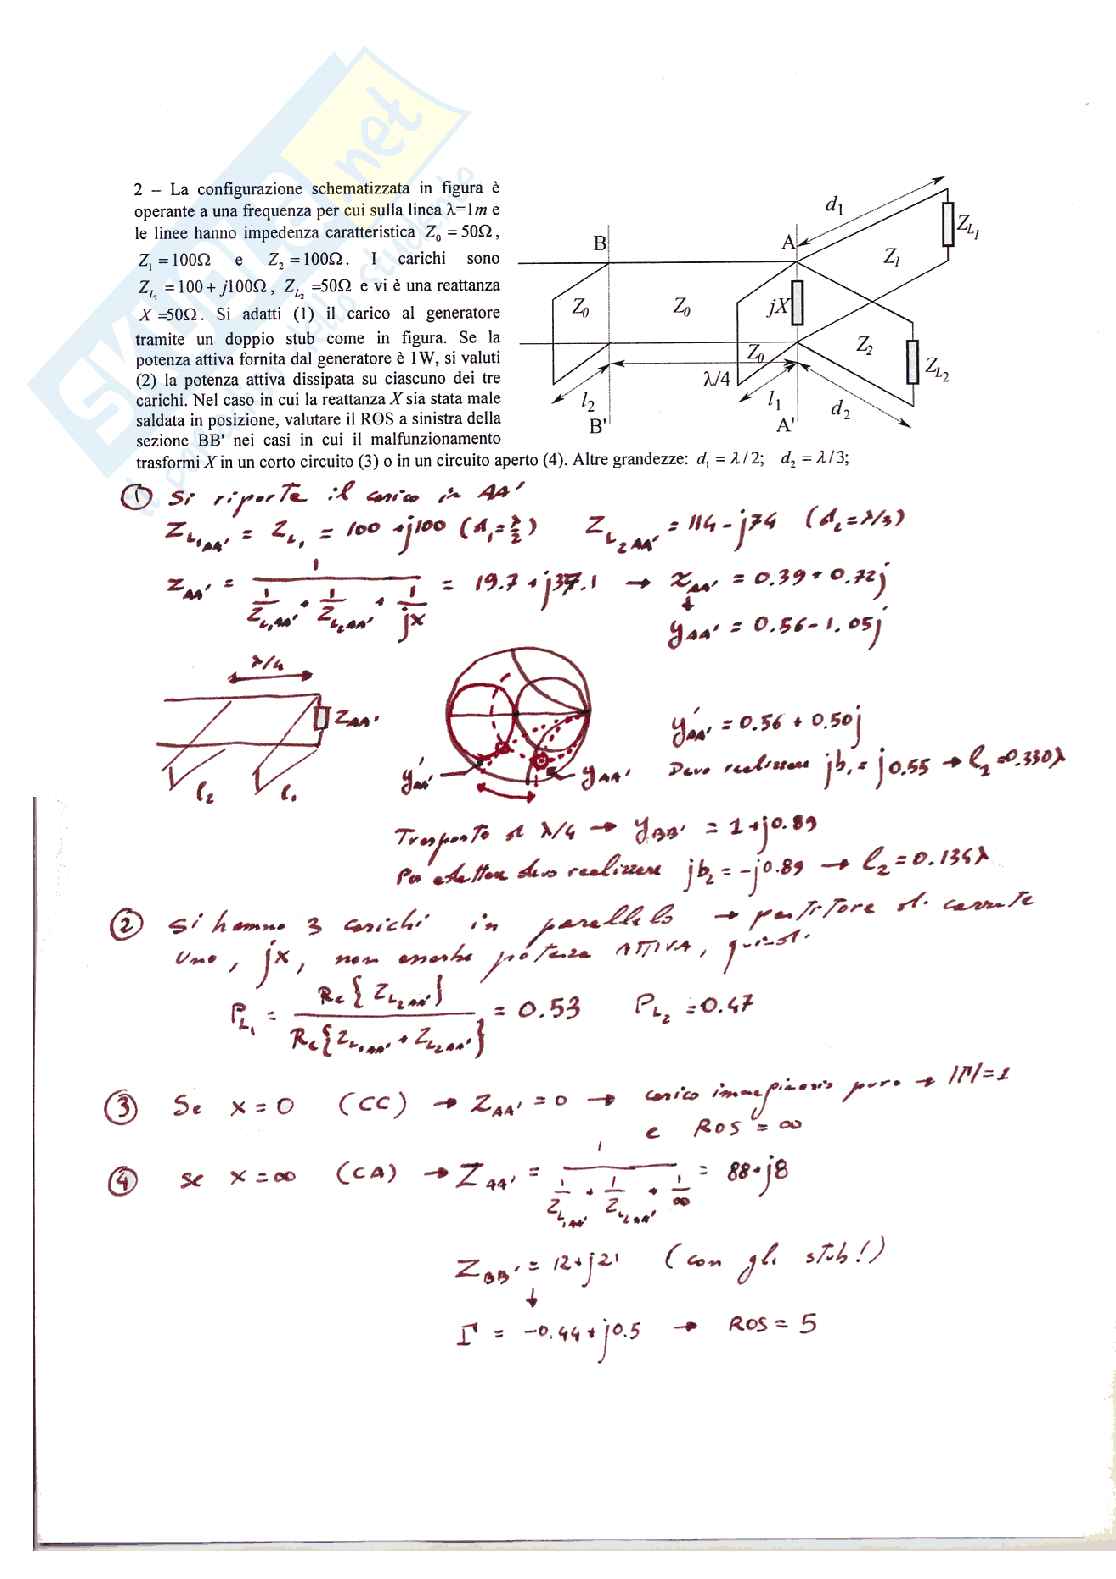 2 – La configurazione schematizzata in figura è
operante a una frequenza per cui sulla linea λ=1m e
le linee hanno impedenza caratteristica Z₀ = 50Ω,
Z₁ = 100Ω e Z₂ = 100Ω. I carichi sono
Z_L₁ = 100 + j100Ω, Z_L₂ = 50Ω e vi è una reattanza
X = 50Ω. Si adatti (1) il carico al generatore
tramite un doppio stub come in figura. Se la
potenza attiva fornita dal generatore è 1W, si valuti
(2) la potenza attiva dissipata su ciascuno dei tre
carichi. Nel caso in cui la reattanza X sia stata male
saldata in posizione, valutare il ROS a sinistra della
sezione BB' nei casi in cui il malfunzionamento
trasformi X in un corto circuito (3) o in un circuito aperto (4). Altre grandezze: d₁ = λ/2; d₂ = λ/3;
B A d₁ Z_L₁
Z₁
Z₀ Z₀ jX
Z₀ Z₂ Z_L₂
λ/4
l₂ l₁ d₂
B' A'
SKUOLA.net
① Si riporta il carico in AA'
Z_L₁AA' = Z_L₁ = 100 + j100 (d₁ = λ/2) Z_L₂AA' = 114 - j74 (d₂ = λ/3)
Z_AA' = 1 / (1/Z_L₁AA' + 1/Z_L₂AA' + 1/jX) = 19.7 + j37.1 → z_AA' = 0.39 + 0.72j
↓
y_AA' = 0.56 - 1.05j
λ/4
Z_AA'
l₂ l₁
y'_AA' y_AA'
y'_AA' = 0.56 + 0.50j
Devo realizzare jb₁ = j0.55 → l₂ = 0.330λ
Trasporto di λ/4 → y_BB' = 1 + j0.89
Per adattare devo realizzare jb₂ = -j0.89 → l₂ = 0.134λ
② Si hanno 3 carichi in parallelo → partitore di corrente
Uno, jX, non assorbe potenza ATTIVA, quindi
P_L₁ = Re{Z_L₂AA'} / Re{Z_L₁AA' + Z_L₂AA'} = 0.53 P_L₂ = 0.47
③ Se X = 0 (CC) → Z_AA' = 0 → carico immaginario puro → |Γ| = 1
e ROS = ∞
④ se X = ∞ (CA) → Z_AA' = 1 / (1/Z_L₁AA' + 1/Z_L₂AA' + 1/∞) = 88 + j8
Z_BB' = 12 + j21 (con gli stub!)
↓
Γ = -0.44 + j0.5 → ROS = 5